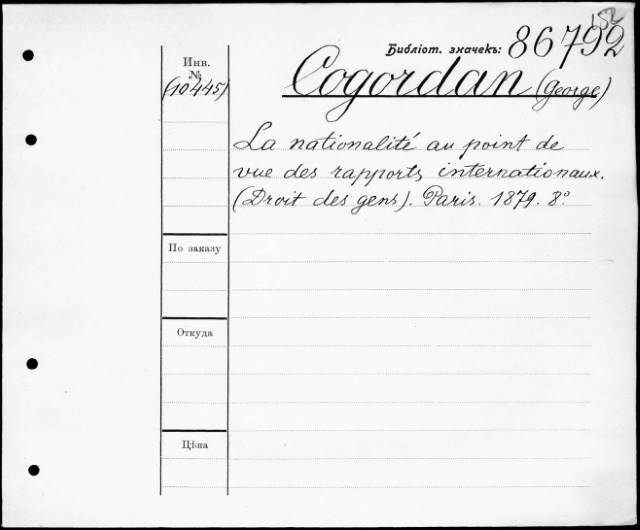 152
Библіот. значекъ: 86792
Инв.
№
(10445)
Cogordan (George)
La nationalité au point de
vue des rapports internationaux.
(Droit des gens). Paris. 1879. 8º
По заказу
Откуда
Цѣна